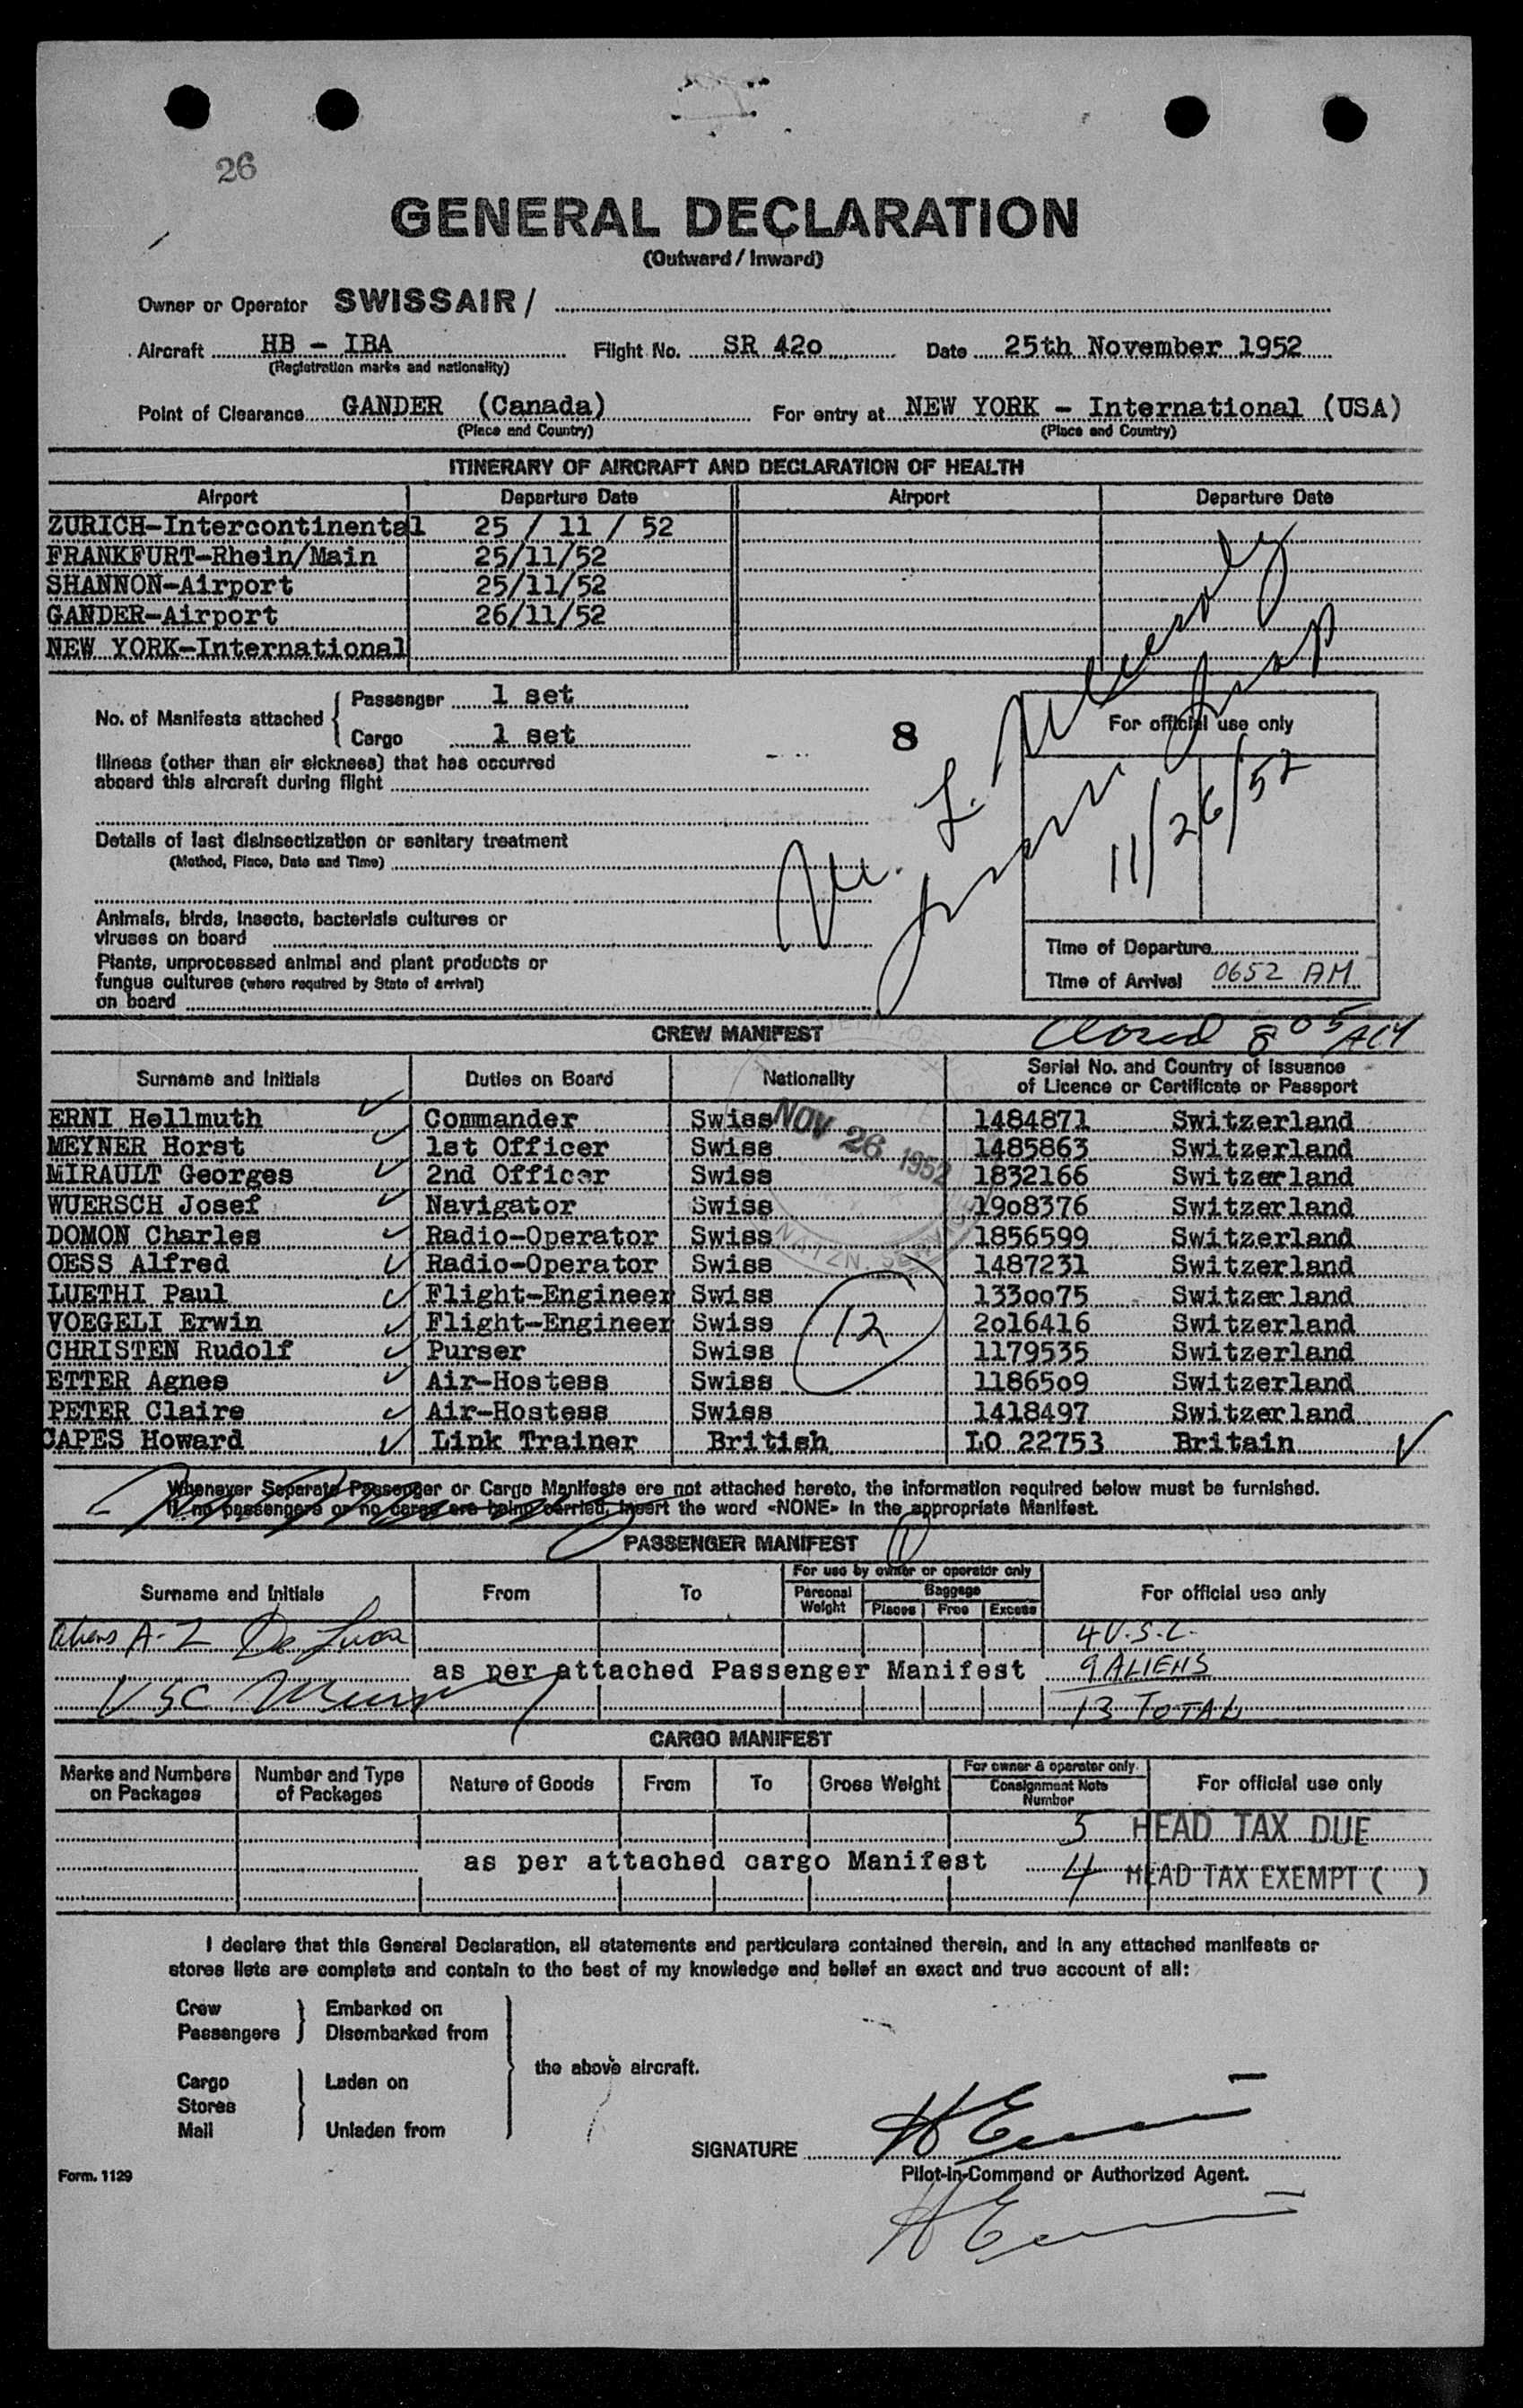 26
GENERAL DECLARATION
(Outward / Inward)
Owner or Operator SWISSAIR /
Aircraft HB - IBA Flight No. SR 42o Date 25th November 1952
(Registration marks and nationality)
Point of Clearance GANDER (Canada) For entry at NEW YORK - International (USA)
(Place and Country) (Place and Country)
ITINERARY OF AIRCRAFT AND DECLARATION OF HEALTH
Airport Departure Date Airport Departure Date
ZURICH-Intercontinental 25 / 11 / 52
FRANKFURT-Rhein/Main 25/11/52
SHANNON-Airport 25/11/52
GANDER-Airport 26/11/52
NEW YORK-International
No. of Manifests attached Passenger 1 set
Cargo 1 set
8
For official use only
Illness (other than air sickness) that has occurred
aboard this aircraft during flight
11/26/52
Details of last disinsectization or sanitary treatment
(Method, Place, Date and Time)
Animals, birds, insects, bacterials cultures or
viruses on board
Plants, unprocessed animal and plant products or
fungus cultures (where required by State of arrival)
on board
Time of Departure
Time of Arrival 0652 AM
CREW MANIFEST
Closed 8 05 AM
Surname and Initials Duties on Board Nationality Serial No. and Country of Issuance
of Licence or Certificate or Passport
ERNI Hellmuth Commander Swiss 1484871 Switzerland
MEYNER Horst 1st Officer Swiss 1485863 Switzerland
MIRAULT Georges 2nd Officer Swiss 1832166 Switzerland
WUERSCH Josef Navigator Swiss 19o8376 Switzerland
DOMON Charles Radio-Operator Swiss 1856599 Switzerland
OESS Alfred Radio-Operator Swiss 1487231 Switzerland
LUETHI Paul Flight-Engineer Swiss 133oo75 Switzerland
VOEGELI Erwin Flight-Engineer Swiss 2o16416 Switzerland
CHRISTEN Rudolf Purser Swiss 1179535 Switzerland
ETTER Agnes Air-Hostess Swiss 11865o9 Switzerland
PETER Claire Air-Hostess Swiss 1418497 Switzerland
CAPES Howard Link Trainer British LO 22753 Britain
NOV 26 1952
12
Whenever Separate Passenger or Cargo Manifests are not attached hereto, the information required below must be furnished.
If no passengers or no cargo are being carried, insert the word «NONE» in the appropriate Manifest.
PASSENGER MANIFEST
Surname and Initials From To For use by owner or operator only For official use only
Personal Weight Baggage
Pieces Free Excess
Aliens A-Z De Luca 4 U.S.C.
as per attached Passenger Manifest 9 ALIENS
USC 13 TOTAL
CARGO MANIFEST
Marks and Numbers on Packages Number and Type of Packages Nature of Goods From To Gross Weight For owner & operator only Consignment Note Number For official use only
5 HEAD TAX DUE
as per attached cargo Manifest 4 HEAD TAX EXEMPT ( )
I declare that this General Declaration, all statements and particulars contained therein, and in any attached manifests or
stores lists are complete and contain to the best of my knowledge and belief an exact and true account of all:
Crew Embarked on
Passengers Disembarked from
the above aircraft.
Cargo Laden on
Stores
Mail Unladen from
SIGNATURE H Erni
Form. 1129 Pilot-in-Command or Authorized Agent.
H Erni